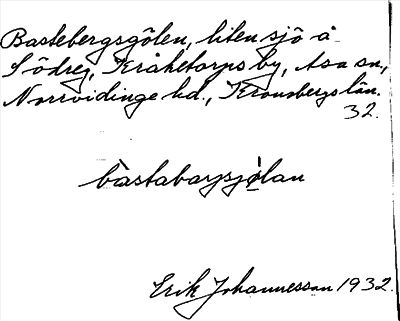 Bastebergsgölen, liten sjö å
Södreg, Kråketorps by, Asa sn.,
Norrvidinge hd., Kronobergs län.
32.
bàstabarjsjờlan
Erik Johannesson 1932.